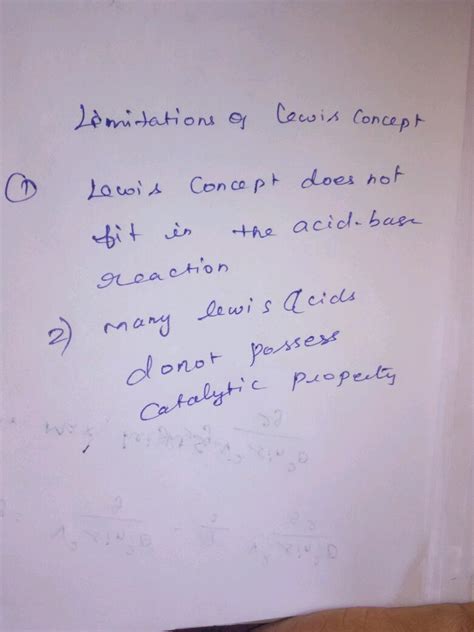 Limitations of Lewis Concept
① Lewis Concept does not
fit in the acid-base
reaction
2) many lewis Acids
donot possess
Catalytic property